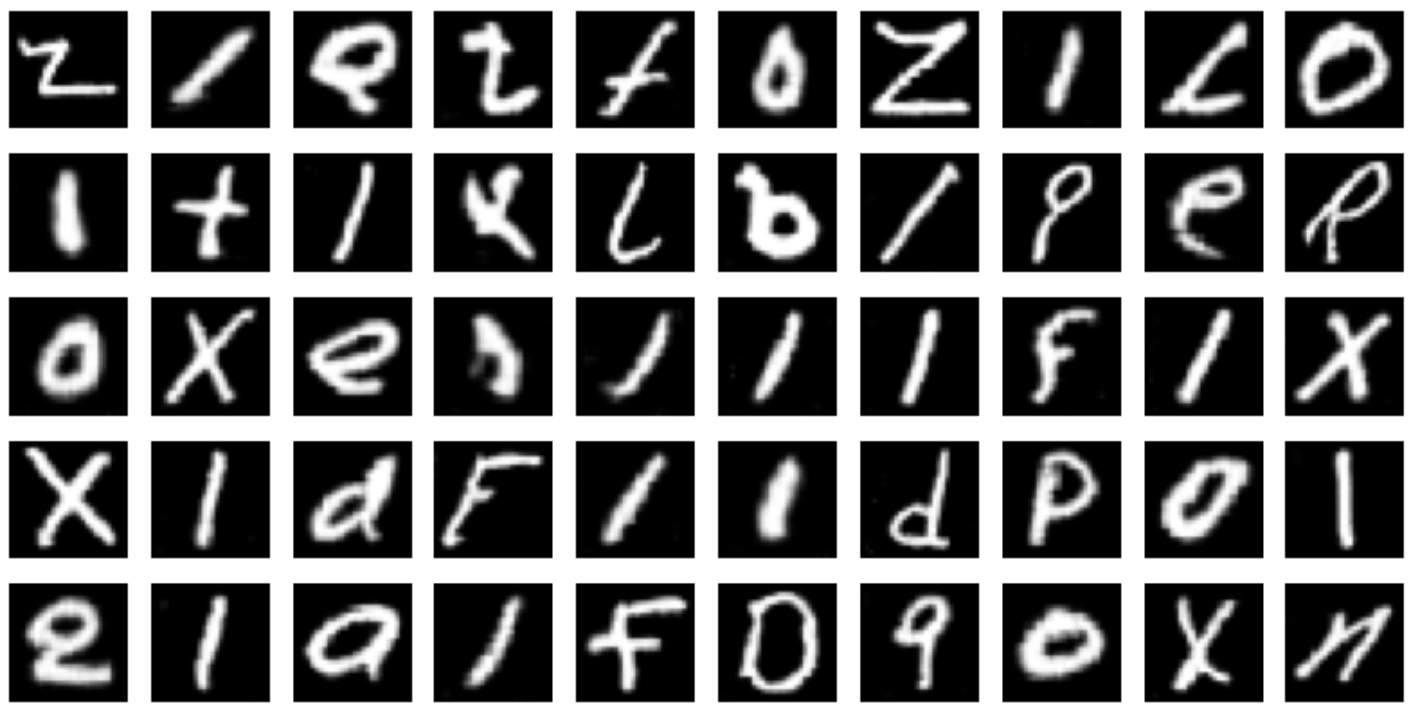 Z / Q t f 0 Z 1 L O
1 + 1 X l b / 9 e R
0 X e J 1 1 F 1 X
X 1 d F 1 1 d P 0 1
2 1 a 1 F D 9 0 X n